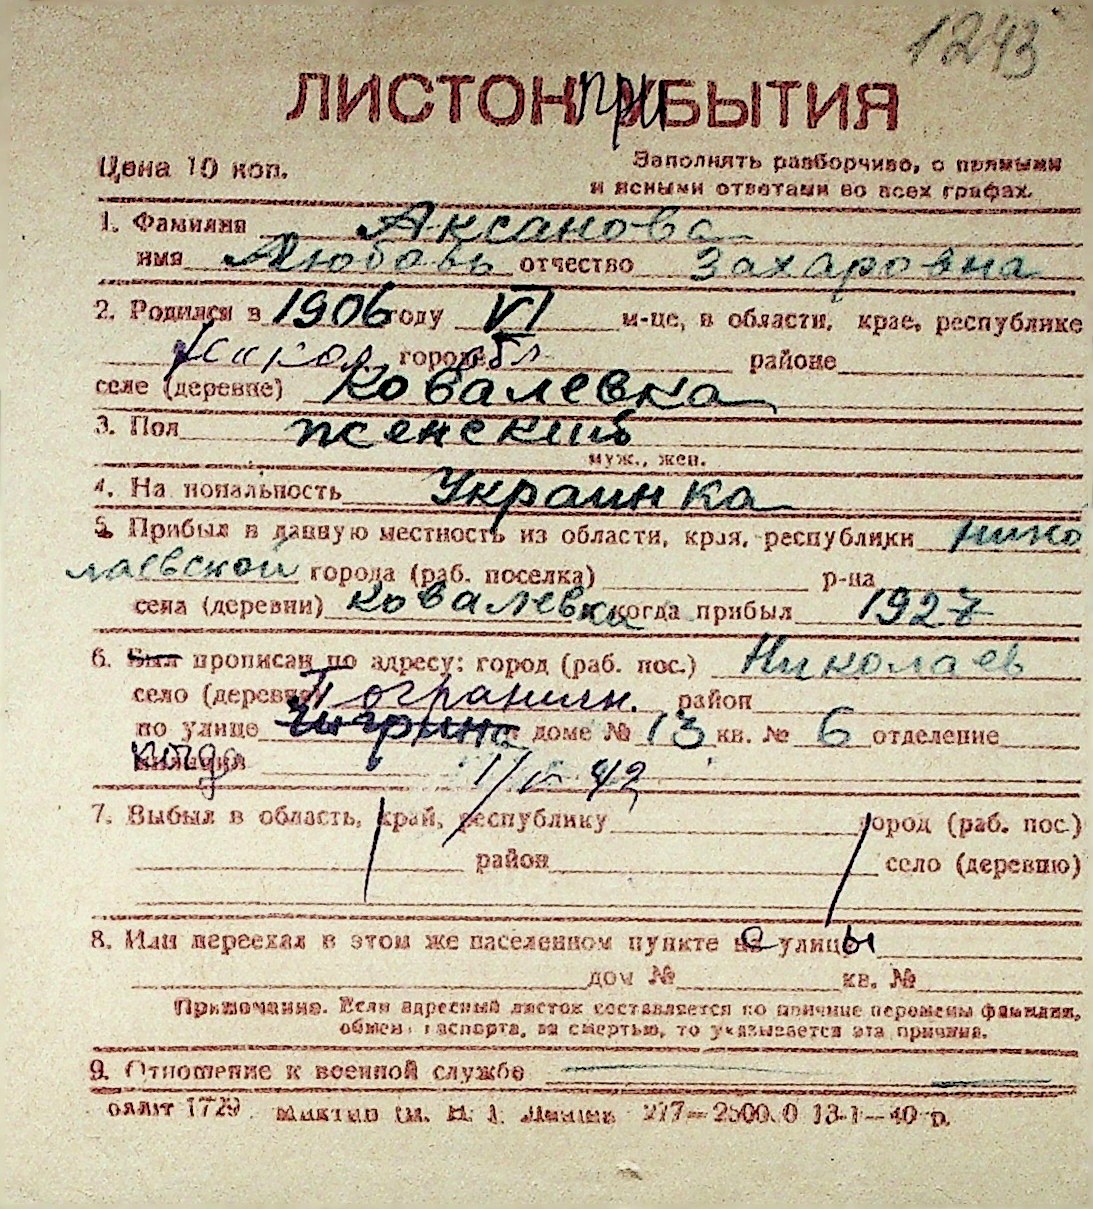 1243
ЛИСТОК ПРИБЫТИЯ
Цена 10 коп.
Заполнять разборчиво, с прямыми
и ясными ответами во всех графах.
1. Фамилия Аксанова
имя Любовь отчество Захаровна
2. Родился в 1906 году VI м-це, в области, крае, республике
Никол. городе обл районе
селе (деревне) Ковалевка
3. Пол женский
муж., жен.
4. Национальность Украинка
5. Прибыл в данную местность из области, края, республики Нико
лаевской города (раб. поселка) р-на
села (деревни) Ковалевка когда прибыл 1927
6. Был прописан по адресу: город (раб. пос.) Николаев
село (деревня) Пограничн. район
по улице Чигрина доме № 13 кв. № 6 отделение
когда 42
7. Выбыл в область, край, республику город (раб. пос.)
район село (деревню)
8. Или переехал в этом же населенном пункте с улицы
дом № кв. №
Примечание. Если адресный листок составляется по причине перемены фамилии,
обмена паспорта, за смертью, то указывается эта причина.
9. Отношение к военной службе
1729 217—2500.0 13-1—40 р.